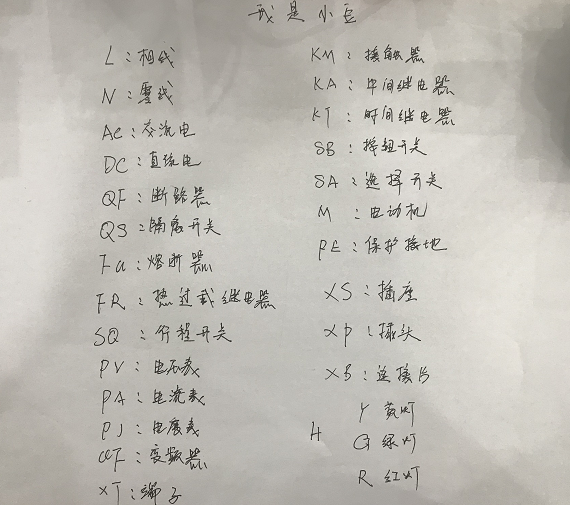 我是小豆
L：相线
N：零线
AC：交流电
DC：直流电
QF：断路器
QS：隔离开关
Fu：熔断器
FR：热过载继电器
SQ：行程开关
PV：电压表
PA：电流表
PJ：电度表
UF：变频器
XT：端子
KM：接触器
KA：中间继电器
KT：时间继电器
SB：按钮开关
SA：选择开关
M：电动机
PE：保护接地
XS：插座
XP：插头
XB：连接片
Y 黄灯
H G 绿灯
R 红灯